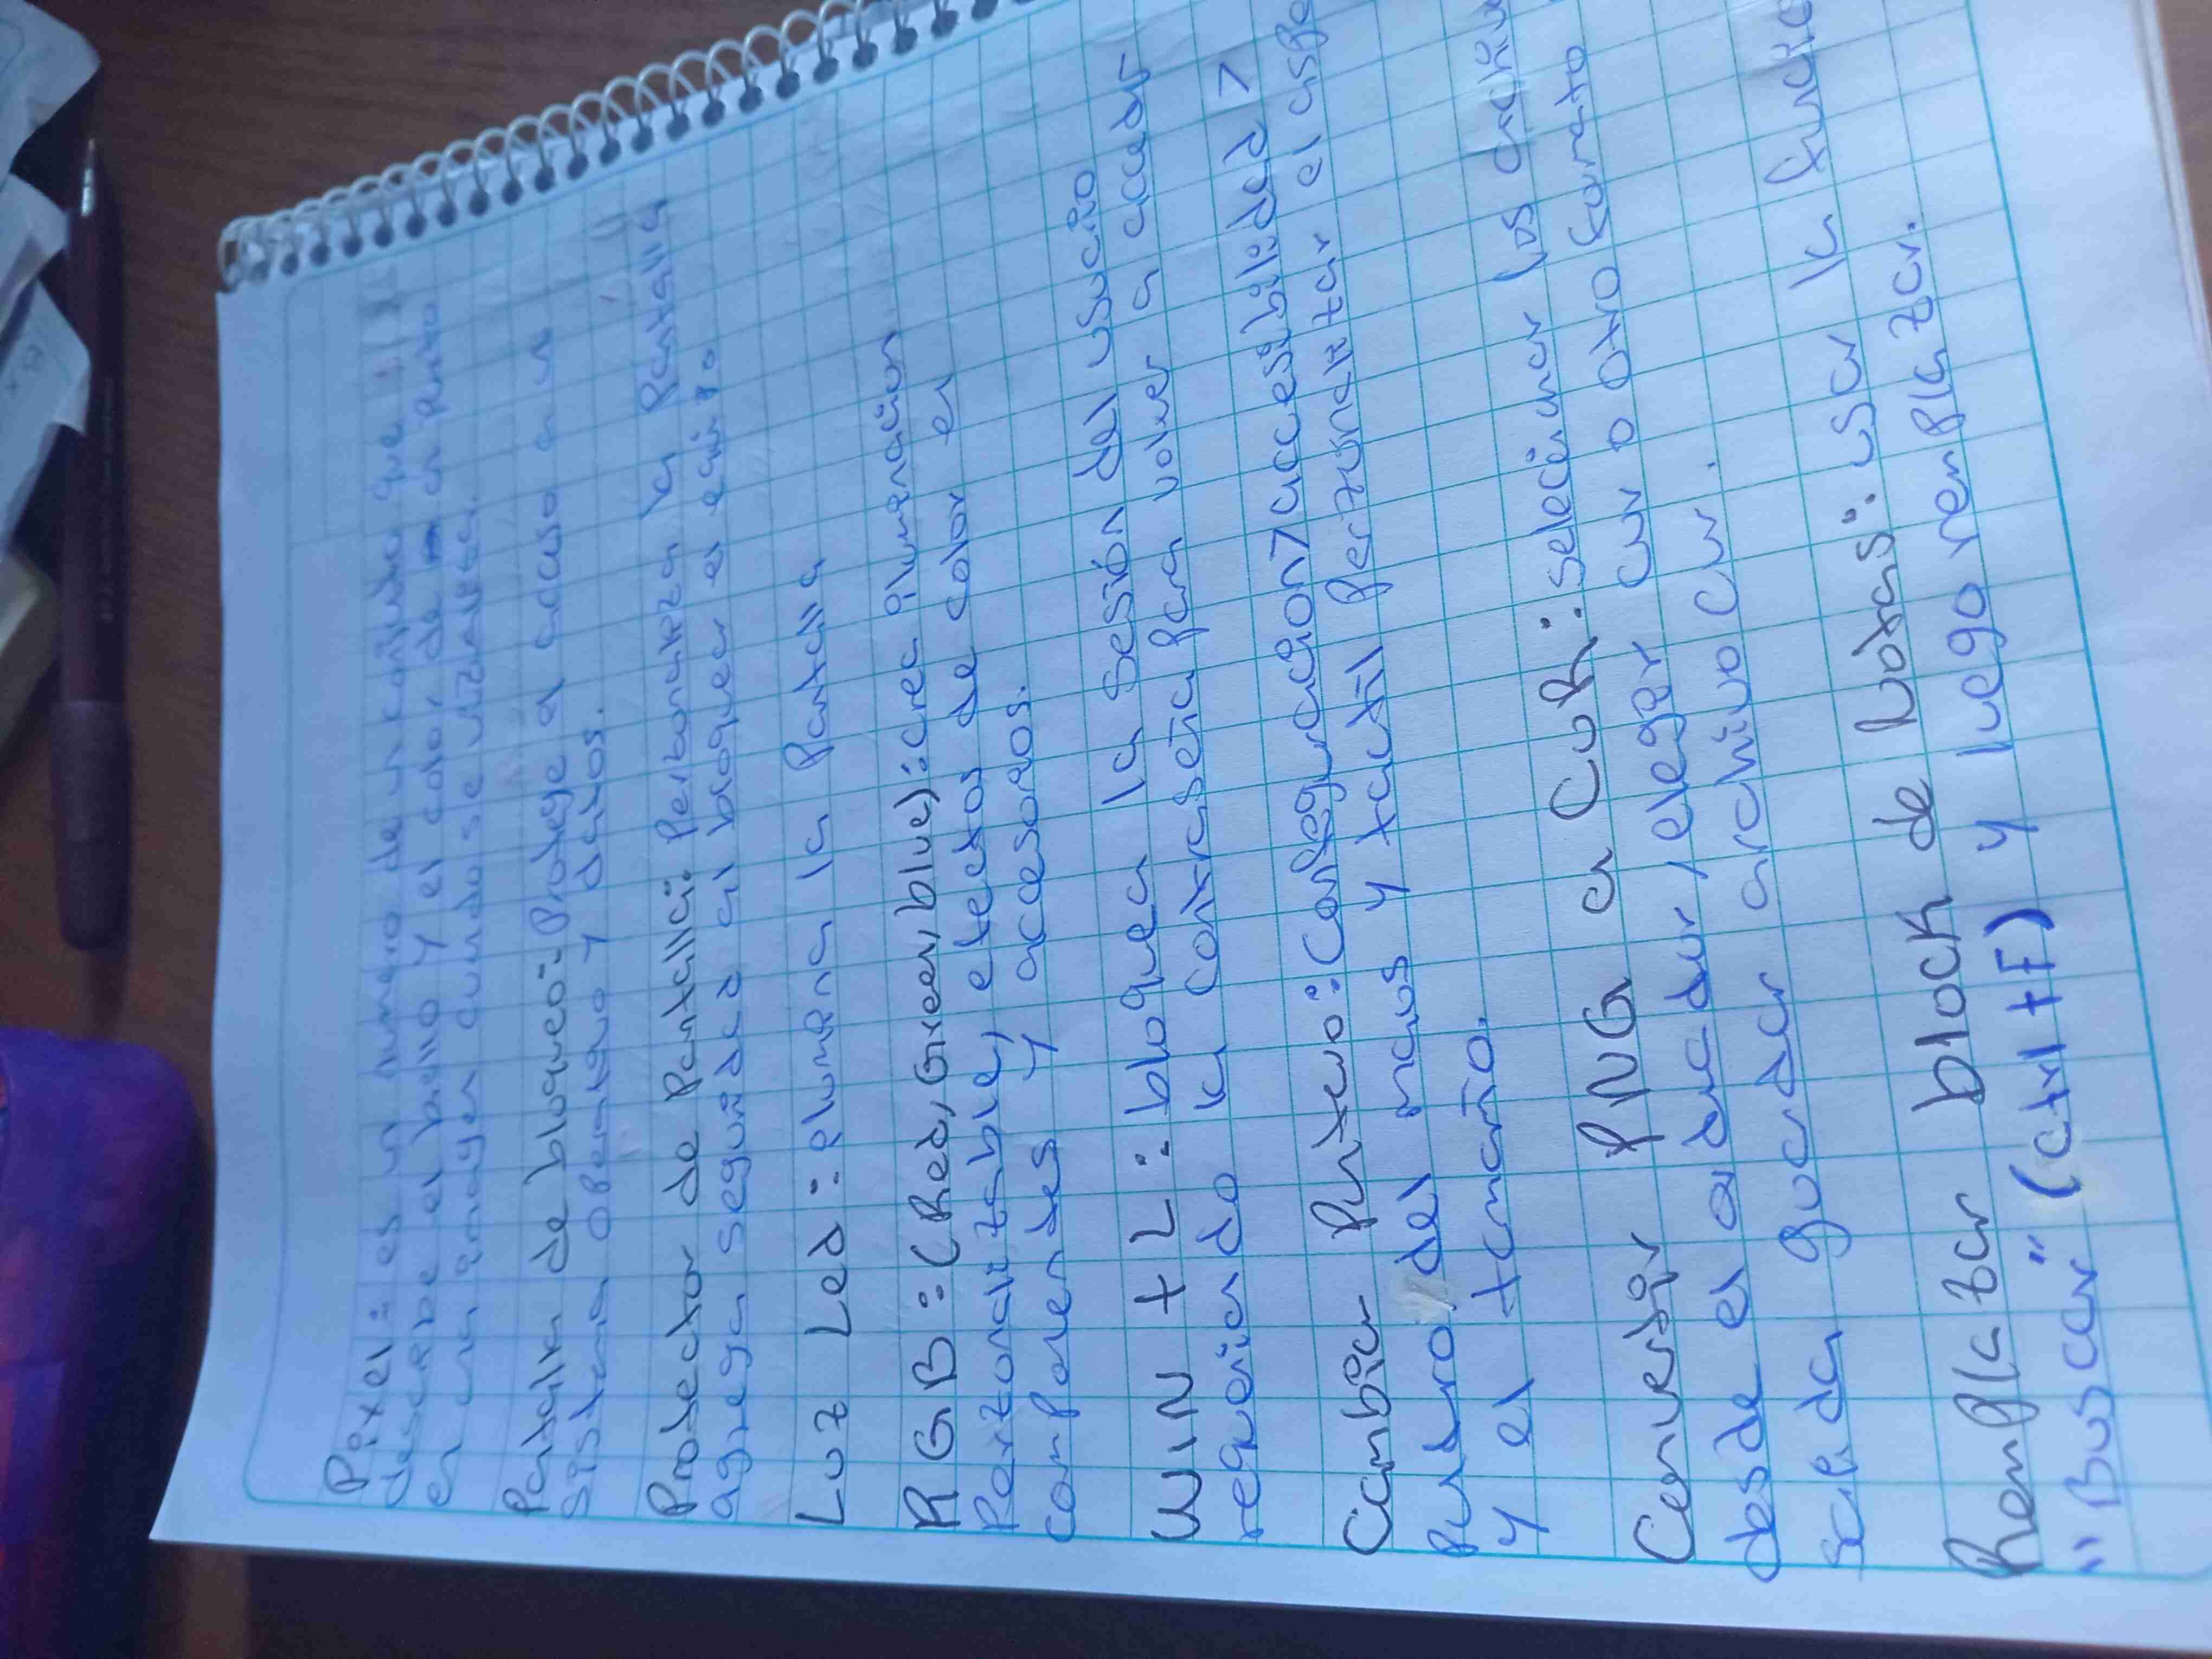 Pixel: es un numero de un conjunto que
describe el brillo y el color de un punto
en una imagen cuando se
Pantalla de bloqueo: Protege el acceso a un
Sistema operativo y datos.
Protector de Pantalla: Personaliza la Pantalla
agrega seguridad al bloquear el equipo
Luz Led: ilumina la Pantalla
RGB: (Red, Green, blue): crea iluminación
Perzonalizable, efectos de color en
componentes y accesorios.
WIN + L: bloquea la sesión del usuario
requerido la contraseña para volver a acceder
Cambiar Puntero: Configuración > accesibilidad >
Puntero del maus y tactil perzonalizar el
y el tamaño.
Convertir PNG a Cur: selecionar los
desde el ordenador, elegir cur o otro formato
salida guardar archivo Cur.
Remplazar block de Notas: usar la
"Buscar" (ctrl + F) y luego remplazar.